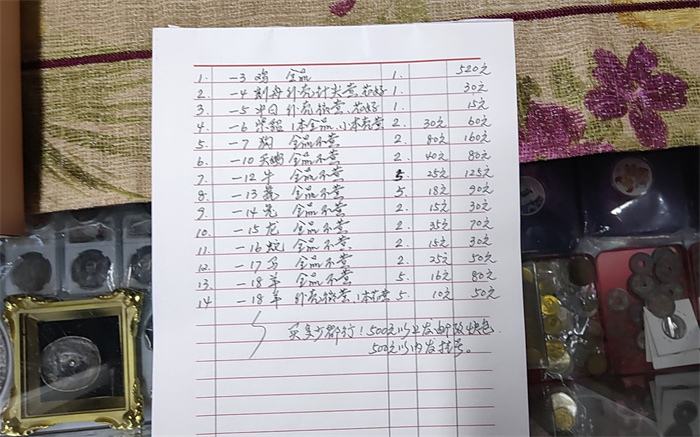 1. -3 鸡 全品 1. 520元
2. -4 刻舟 外壳针尖黄, 芯好 1. 30元
3. -5 中日 外壳微黄, 芯好 1. 15元
4. -6 紫貂 1本全品, 1本壳黄 2. 30元 60元
5. -7 狗 全品不黄 2. 80元 160元
6. -10 全品不黄 2. 40元 80元
7. -12 牛 全品不黄 5. 25元 125元
8. -13 全品不黄 5 18元 90元
9. -14 兔 全品不黄 2. 15元 30元
10. -15 龙 全品不黄 2. 35元 70元
11. -16 蛇 全品不黄 2. 15元 30元
12. -17 马 全品不黄 2. 25元 50元
13. -18 羊 全品不黄 5. 16元 80元
14 -18 羊 外壳微黄, 1本壳黄 5. 10元 50元
买多少都行! 500元以上发邮政快包
500元以内发挂号。